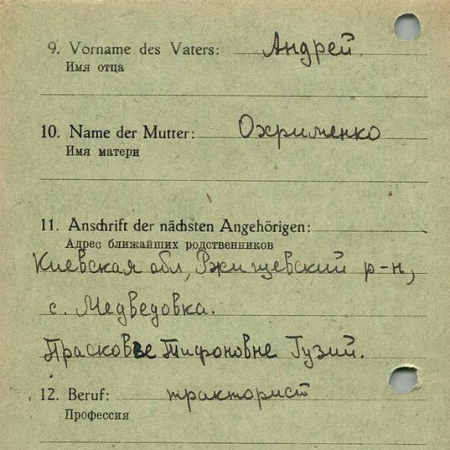 9. Vorname des Vaters: Андрей
Имя отца
10. Name der Mutter: Охрименко
Имя матери
11. Anschrift der nächsten Angehörigen:
Адрес ближайших родственников
Киевская обл, Ржищевский р-н,
с. Медведовка.
Прасковье Тифоновне Гузий.
12. Beruf: тракторист
Профессия